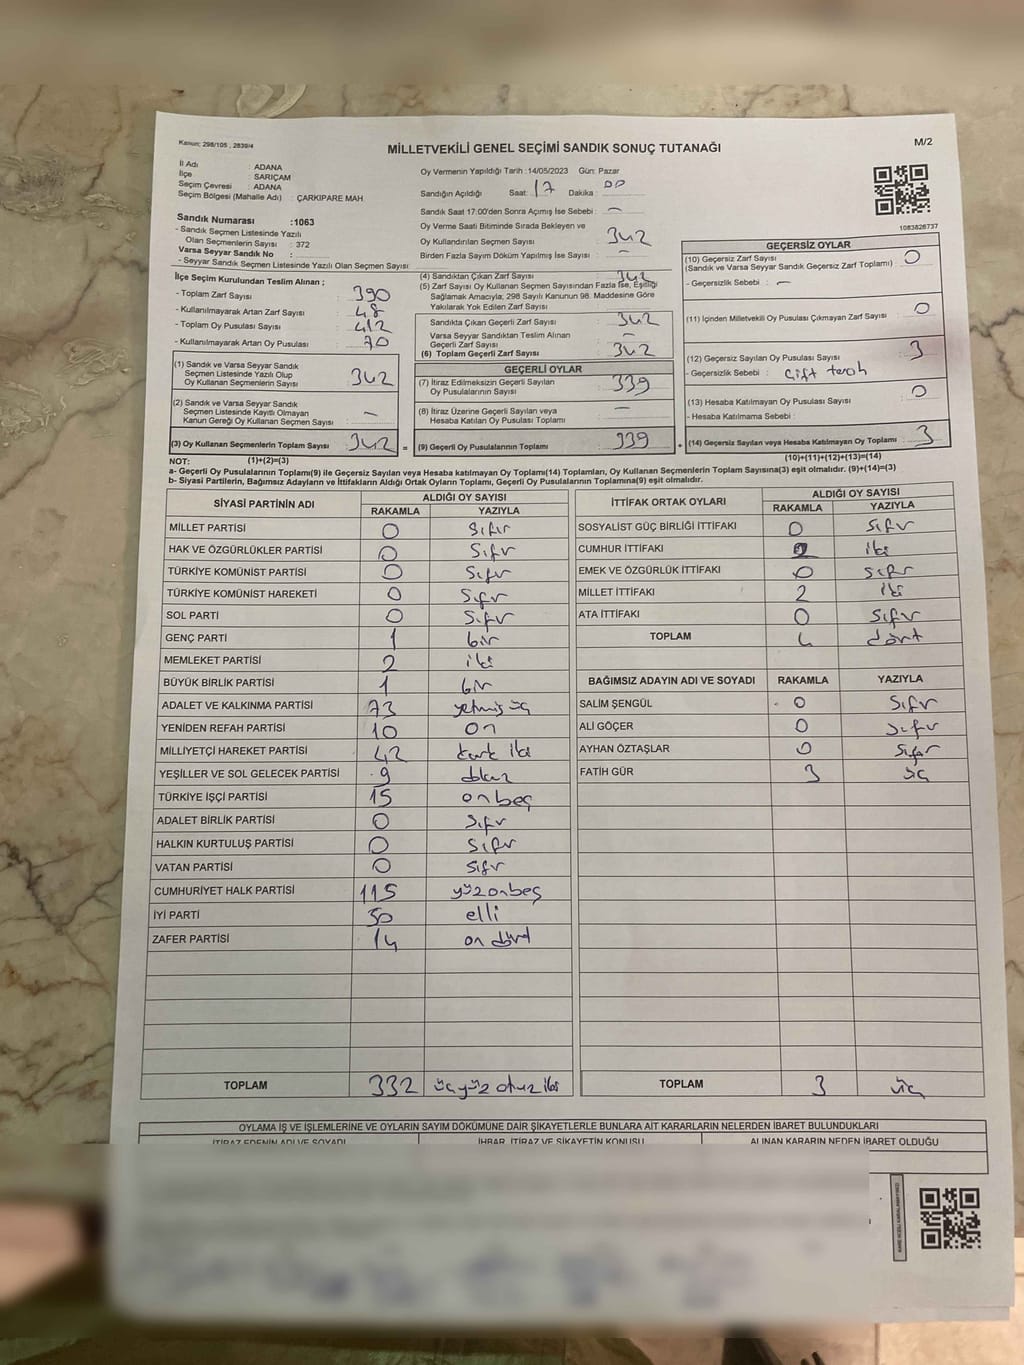 Kanun; 298/105 , 2839/4
M/2
MİLLETVEKİLİ GENEL SEÇİMİ SANDIK SONUÇ TUTANAĞI
İl Adı : ADANA
İlçe : SARIÇAM
Seçim Çevresi : ADANA
Seçim Bölgesi (Mahalle Adı) : ÇARKIPARE MAH
Sandık Numarası :1063
- Sandık Seçmen Listesinde Yazılı
Olan Seçmenlerin Sayısı : 372
Varsa Seyyar Sandık No :
- Seyyar Sandık Seçmen Listesinde Yazılı Olan Seçmen Sayısı
Oy Vermenin Yapıldığı Tarih :14/05/2023 Gün: Pazar
Sandığın Açıldığı Saat: 17 Dakika : 00
Sandık Saat 17:00'den Sonra Açımış İse Sebebi : —
Oy Verme Saati Bitiminde Sırada Bekleyen ve
Oy Kullandırılan Seçmen Sayısı : 342
Birden Fazla Sayım Döküm Yapılmış İse Sayısı : —
1083826737
İlçe Seçim Kurulundan Teslim Alınan ;
- Toplam Zarf Sayısı : 390
- Kullanılmayarak Artan Zarf Sayısı : 48
- Toplam Oy Pusulası Sayısı : 412
- Kullanılmayarak Artan Oy Pusulası : 70
(1) Sandık ve Varsa Seyyar Sandık
Seçmen Listesinde Yazılı Olup
Oy Kullanan Seçmenlerin Sayısı 342
(2) Sandık ve Varsa Seyyar Sandık
Seçmen Listesinde Kayıtlı Olmayan
Kanun Gereği Oy Kullanan Seçmen Sayısı —
(3) Oy Kullanan Seçmenlerin Toplam Sayısı 342 =
(4) Sandıktan Çıkan Zarf Sayısı : 342
(5) Zarf Sayısı Oy Kullanan Seçmen Sayısından Fazla İse, Eşitliği
Sağlamak Amacıyla; 298 Sayılı Kanunun 98. Maddesine Göre
Yakılarak Yok Edilen Zarf Sayısı : —
Sandıkta Çıkan Geçerli Zarf Sayısı : 342
Varsa Seyyar Sandıktan Teslim Alınan
Geçerli Zarf Sayısı : —
(6) Toplam Geçerli Zarf Sayısı : 342
GEÇERLİ OYLAR
(7) İtiraz Edilmeksizin Geçerli Sayılan
Oy Pusulalarının Sayısı : 339
(8) İtiraz Üzerine Geçerli Sayılan veya
Hesaba Katılan Oy Pusulası Toplamı : —
(9) Geçerli Oy Pusulalarının Toplamı : 339 +
GEÇERSİZ OYLAR
(10) Geçersiz Zarf Sayısı
(Sandık ve Varsa Seyyar Sandık Geçersiz Zarf Toplamı) : 0
- Geçersizlik Sebebi : —
(11) İçinden Milletvekili Oy Pusulası Çıkmayan Zarf Sayısı : 0
(12) Geçersiz Sayılan Oy Pusulası Sayısı : 3
- Geçersizlik Sebebi : çift tercih
(13) Hesaba Katılmayan Oy Pusulası Sayısı : 0
- Hesaba Katılmama Sebebi :
(14) Geçersiz Sayılan veya Hesaba Katılmayan Oy Toplamı : 3
NOT: (1)+(2)=(3) (10)+(11)+(12)+(13)=(14)
a- Geçerli Oy Pusulalarının Toplamı(9) ile Geçersiz Sayılan veya Hesaba katılmayan Oy Toplamı(14) Toplamları, Oy Kullanan Seçmenlerin Toplam Sayısına(3) eşit olmalıdır. (9)+(14)=(3)
b- Siyasi Partilerin, Bağımsız Adayların ve İttifakların Aldığı Ortak Oyların Toplamı, Geçerli Oy Pusulalarının Toplamına(9) eşit olmalıdır.
SİYASİ PARTİNİN ADI ALDIĞI OY SAYISI
RAKAMLA YAZIYLA
MİLLET PARTİSİ 0 Sıfır
HAK VE ÖZGÜRLÜKLER PARTİSİ 0 Sıfır
TÜRKİYE KOMÜNİST PARTİSİ 0 Sıfır
TÜRKİYE KOMÜNİST HAREKETİ 0 Sıfır
SOL PARTİ 0 Sıfır
GENÇ PARTİ 1 bir
MEMLEKET PARTİSİ 2 iki
BÜYÜK BİRLİK PARTİSİ 1 bir
ADALET VE KALKINMA PARTİSİ 73 yetmiş üç
YENİDEN REFAH PARTİSİ 10 on
MİLLİYETÇİ HAREKET PARTİSİ 42 kırk iki
YEŞİLLER VE SOL GELECEK PARTİSİ 9 dokuz
TÜRKİYE İŞÇİ PARTİSİ 15 on beş
ADALET BİRLİK PARTİSİ 0 Sıfır
HALKIN KURTULUŞ PARTİSİ 0 Sıfır
VATAN PARTİSİ 0 Sıfır
CUMHURİYET HALK PARTİSİ 115 yüz onbeş
İYİ PARTİ 50 elli
ZAFER PARTİSİ 14 on dört
TOPLAM 332 üçyüz otuz iki
İTTİFAK ORTAK OYLARI ALDIĞI OY SAYISI
RAKAMLA YAZIYLA
SOSYALİST GÜÇ BİRLİĞİ İTTİFAKI 0 Sıfır
CUMHUR İTTİFAKI 2 iki
EMEK VE ÖZGÜRLÜK İTTİFAKI 0 Sıfır
MİLLET İTTİFAKI 2 iki
ATA İTTİFAKI 0 Sıfır
TOPLAM 4 dört
BAĞIMSIZ ADAYIN ADI VE SOYADI RAKAMLA YAZIYLA
SALİM ŞENGÜL 0 Sıfır
ALİ GÖÇER 0 Sıfır
AYHAN ÖZTAŞLAR 0 Sıfır
FATİH GÜR 3 üç
TOPLAM 3 üç
OYLAMA İŞ VE İŞLEMLERİNE VE OYLARIN SAYIM DÖKÜMÜNE DAİR ŞİKAYETLERLE BUNLARA AİT KARARLARIN NELERDEN İBARET BULUNDUKLARI
İTİRAZ EDENİN ADI VE SOYADI İHBAR, İTİRAZ VE ŞİKAYETİN KONUSU ALINAN KARARIN NEDEN İBARET OLDUĞU